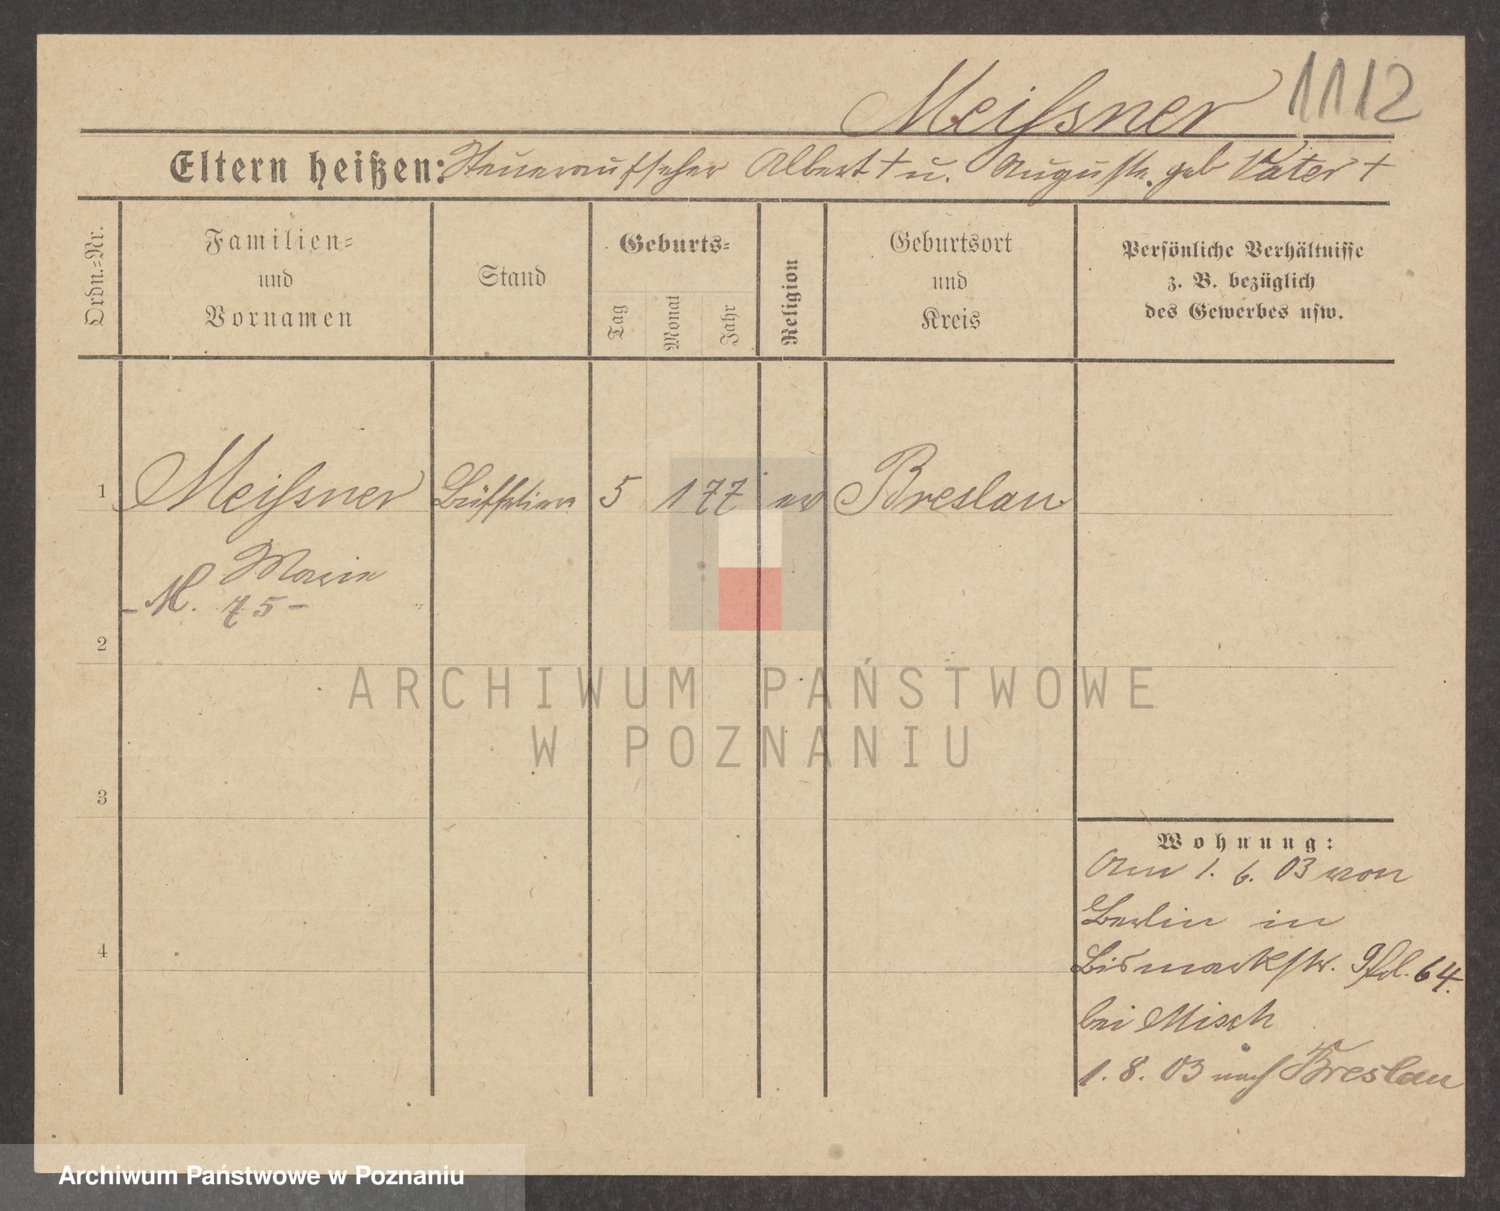 Meißner 1112
Eltern heißen: Steueraufseher Albert † u. Auguste geb Vater †
Ordn.=Nr.
Familien=
und
Vornamen
Stand
Geburts=
Tag
Monat
Jahr
Religion
Geburtsort
und
Kreis
Persönliche Verhältnisse
z. B. bezüglich
des Gewerbes usw.
1 Meißner 5 1 77 ev Breslau
Marie
- M. 75 -
2
3
4
Wohnung:
Am 1. 6. 03 von
Berlin in
Bismarckstr. 64.
bei Misch
1. 8. 03 nach Breslau
ARCHIWUM PAŃSTWOWE
W POZNANIU
Archiwum Państwowe w Poznaniu